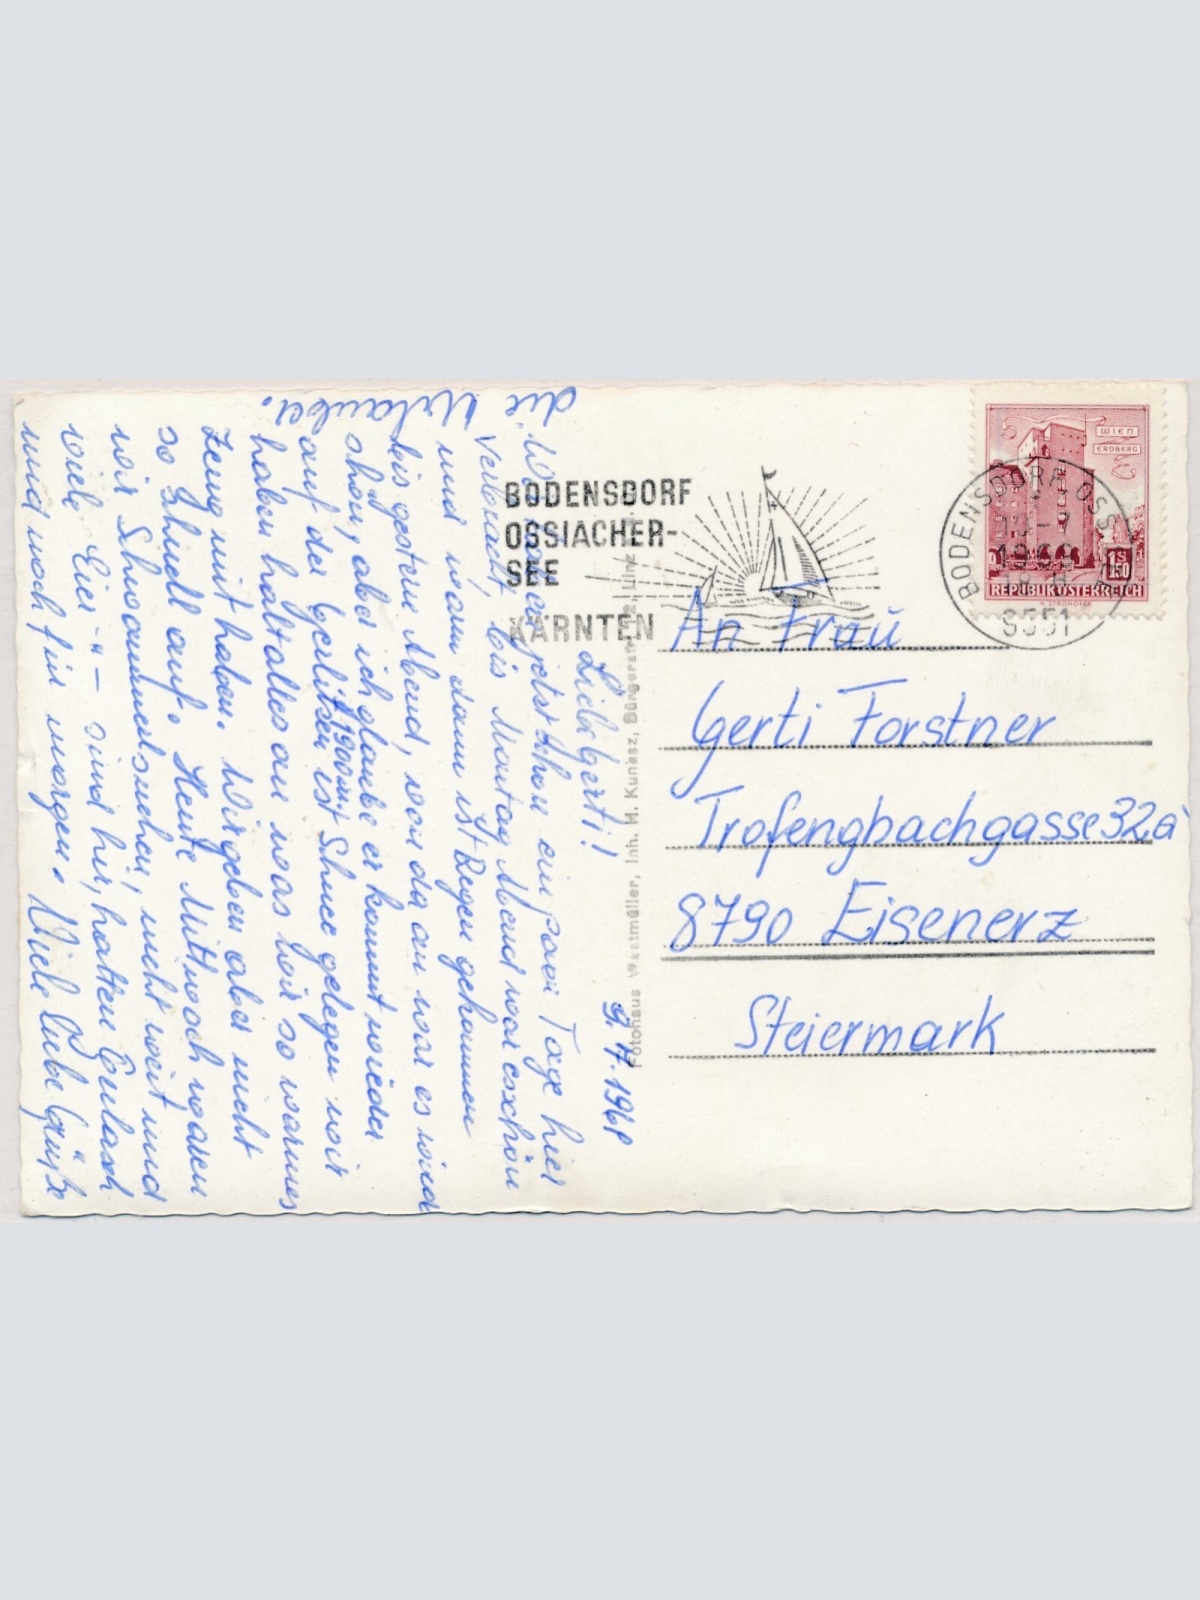 BODENSDORF
OSSIACHER-
SEE
KÄRNTEN
BODENSDORF OSS
9551
WIEN
ERDBERG
1S
1.50
REPUBLIK ÖSTERREICH
H. STROHOFER
An Frau
Gerti Forstner
Trofengbachgasse 32a
8790 Eisenerz
Steiermark
Fotohaus Westmüller, Inh. H. Kunesz, Bürgerstr. 12, Linz
9.7.1968
Liebe Gerti!
Wir sind jetzt schon ein paar Tage hier
Verbracht, bis Montag Abend war es schön
und warm dann ist Regen gekommen
bis gestern Abend, von da an war es wieder
schön, aber ich glaube er kommt wieder
auf der Gerlitzen 1900m ist Schnee gelegen wir
haben halt alles an was wir so warmes
Zeug mit haben. Wir geben aber nicht
so schnell auf. Heute Mittwoch waren
wir Schwammerlsuchen, nicht weit und
viele Eier " — sind hir, hatten Gulasch
und noch für morgen. Viele liebe Grüße
die
Urlauber.